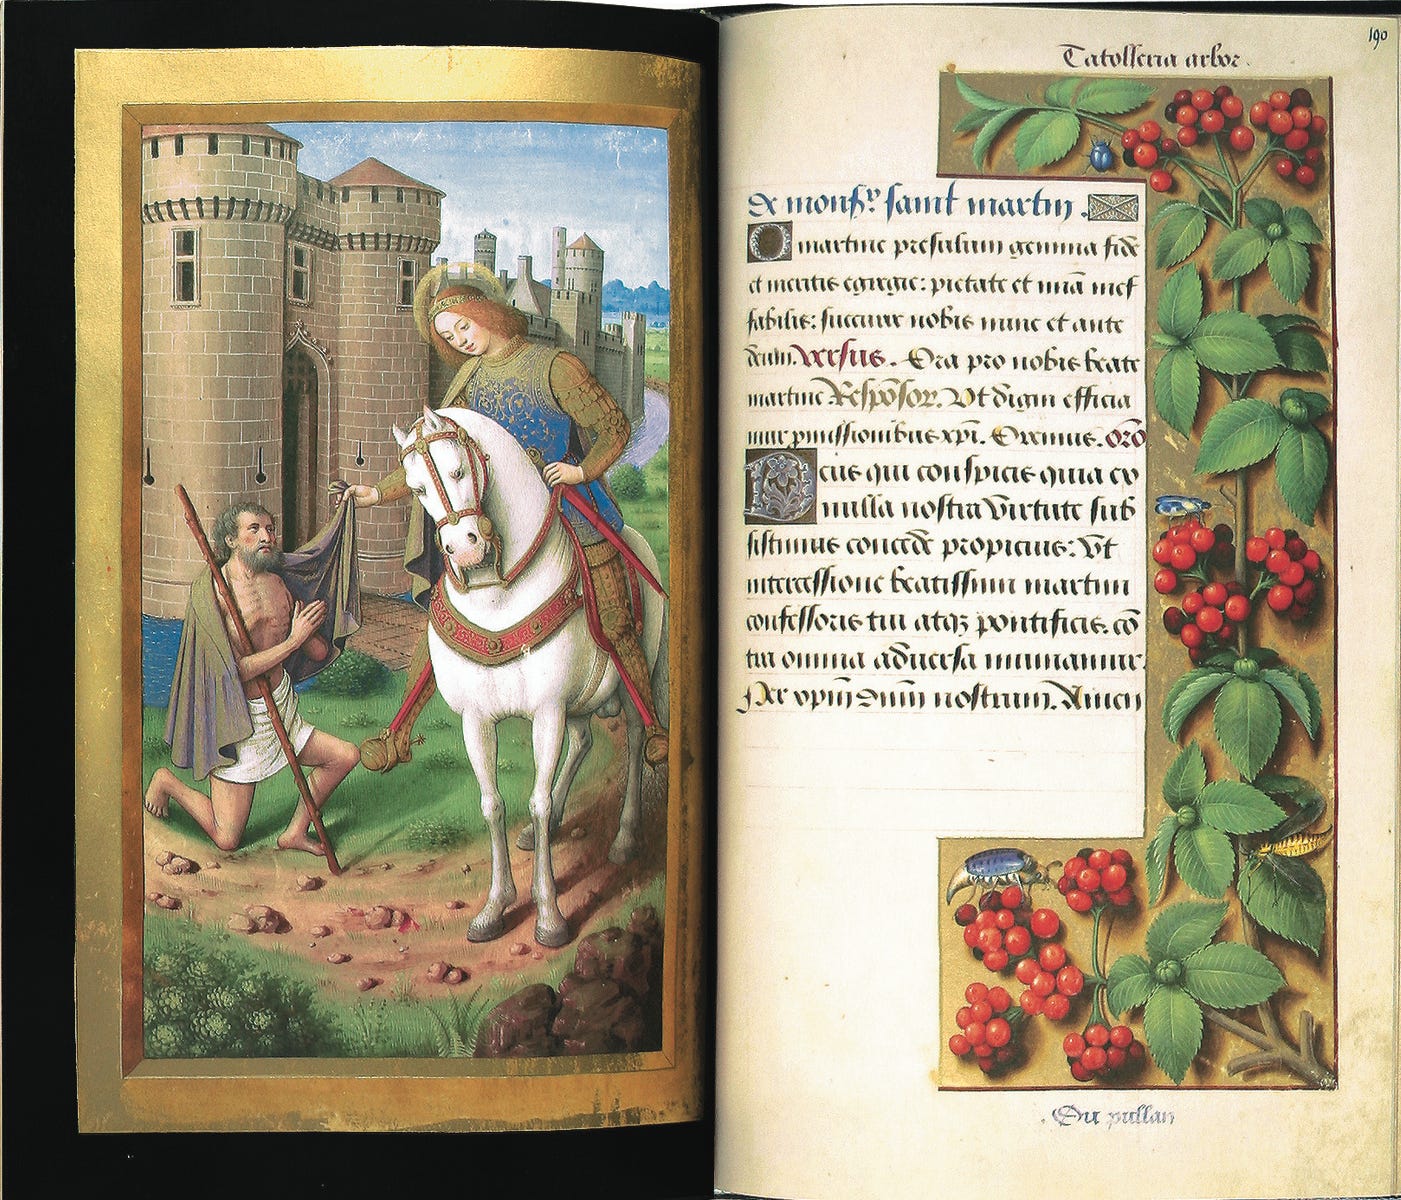 190
Tatolseria arbor.
De monsr. saint martin.
O martine presulum gemma fide
et meritis egregie: pietate et mia inef
fabilis: succurre nobis nunc et ante
deum. Versus. Ora pro nobis beate
martine Responsor. Vt digni efficia
mur pmissionibus xpi. Oremus. oro
Deus qui conspicis quia ex
nulla nostra virtute sub
sistimus concede propicius: Vt
intercessione beatissimi martini
confessoris tui atq3 pontificis. co
tra omnia aduersa muniamur.
Per xpm dnm nostrum. Amen
. Du pullan